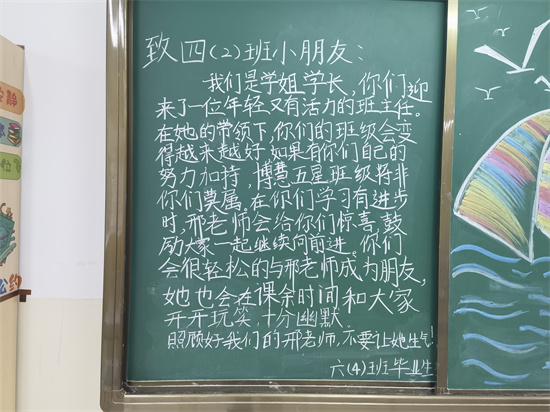 致四(2)班小朋友:
我们是学姐学长,你们迎
来了一位年轻又有活力的班主任。
在她的带领下,你们的班级会变
得越来越好,如果有你们自己的
努力加持,博慧五星班级将非
你们莫属。在你们学习有进步
时,邢老师会给你们惊喜,鼓
励大家一起继续向前进。你们
会很轻松的与邢老师成为朋友,
她也会在课余时间和大家
开开玩笑,十分幽默。
照顾好我们的邢老师,不要让她生气!
六(4)班毕业生